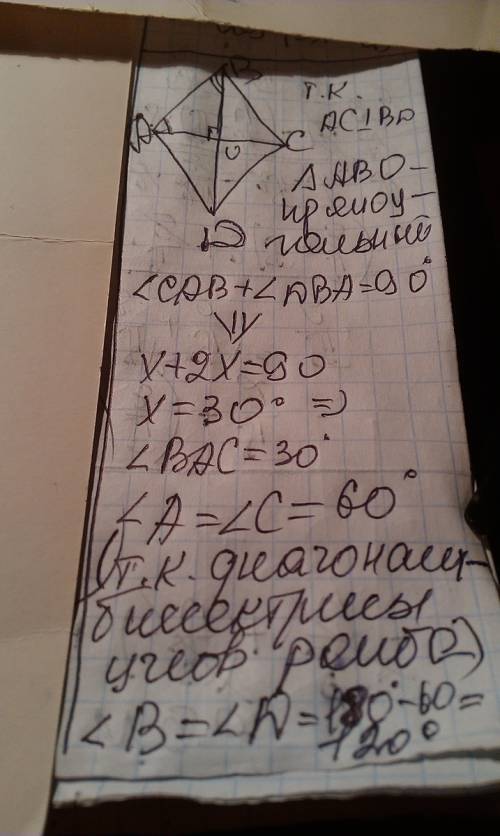 B
A
O
C
D
т.к.
AC⊥BD
△ABO-
прямоу-
гольный
∠CAB+∠DBA=90°
⇓
x+2x=90
x=30° ⇒
∠BAC=30°
∠A=∠C=60°
(т.к. диагонали-
биссектрисы
углов ромба)
∠B=∠D=180°-60=
120°